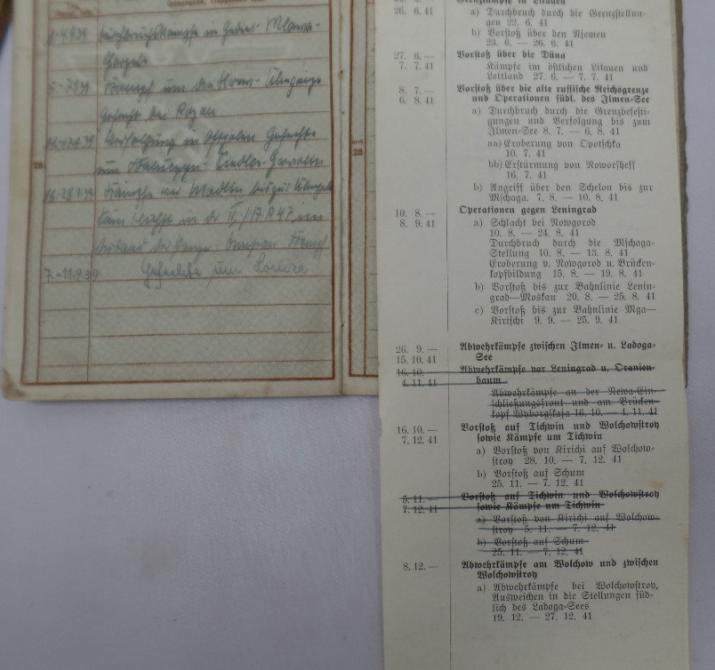 28
1-4.9.39 Durchbruchskämpfe im Gebiet Mlawa-
5-7.9.39 Kampf um die Narew-Übergänge
Gefecht bei Rozan
Verfolgung in Ostpolen Gefechte
um
Kämpfe um Modlin bis zur Übergabe
7.-11.9.39 Gefechte um
28
Grenzkämpfe in Litauen
26. 6. 41
a) Durchbruch durch die Grenzstellun-
gen 22. 6. 41
b) Vorstoß über den Njemen
23. 6. — 26. 6. 41
27. 6. — Vorstoß über die Düna
7. 7. 41
Kämpfe im östlichen Litauen und
Lettland 27. 6. — 7. 7. 41
8. 7. — Vorstoß über die alte russische Reichsgrenze
6. 8. 41 und Operationen südl. des Ilmen-See
a) Durchbruch durch die Grenzbefesti-
gungen und Verfolgung bis zum
Ilmen-See 8. 7. — 6. 8. 41
aa) Eroberung von Opotschka
10. 7. 41
bb) Erstürmung von Noworshew
16. 7. 41
b) Angriff über den Schelon bis zur
Mschaga. 7. 8. — 10. 8. 41
10. 8. — Operationen gegen Leningrad
8. 9. 41
a) Schlacht bei Nowgorod
10. 8. — 24. 8. 41
Durchbruch durch die Mschaga-
Stellung 10. 8. — 13. 8. 41
Eroberung v. Nowgorod u. Brücken-
kopfbildung 15. 8. — 19. 8. 41
b) Vorstoß bis zur Bahnlinie Lenin-
grad—Moskau 20. 8. — 25. 8. 41
c) Vorstoß bis zur Bahnlinie Mga—
Kirischi 9. 9. — 25. 9. 41
26. 9. — Abwehrkämpfe zwischen Ilmen- u. Ladoga-
15. 10. 41 See
16. 10. — Abwehrkämpfe vor Leningrad u. Oranien-
4. 11. 41 baum
Abwehrkämpfe an der Newa-Ein-
schließungsfront und am Brücken-
kopf Wyborgskaja 16. 10. — 4. 11. 41
16. 10. — Vorstoß auf Tichwin und Wolchowstroy
7. 12. 41 sowie Kämpfe um Tichwin
a) Vorstoß von Kirichi auf Wolchow-
stroy 28. 10. — 7. 12. 41
b) Vorstoß auf Schum
25. 11. — 7. 12. 41
5. 11. — Vorstoß auf Tichwin und Wolchowstroy
7. 12. 41 sowie Kämpfe um Tichwin
a) Vorstoß von Kirichi auf Wolchow-
stroy 5. 11. — 7. 12. 41
b) Vorstoß auf Schum
25. 11. — 7. 12. 41
8. 12. — Abwehrkämpfe am Wolchow und zwischen
Wolchowstroy
a) Abwehrkämpfe bei Wolchowstroy,
Ausweichen in die Stellungen süd-
lich des Ladoga-Sees
19. 12. — 27. 12. 41